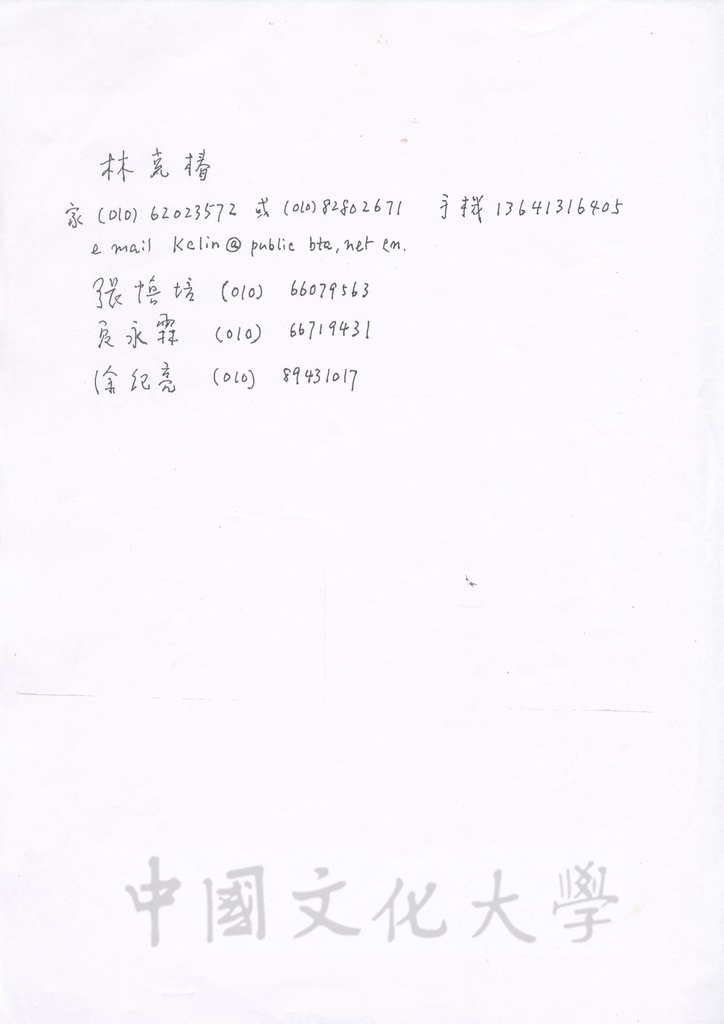 林克椿
家 (010) 62023572 或 (010) 82802671 手機 13641316405
e mail Kclin@ public bta, net cn.
張慎培 (010) 66079563
夏永霖 (010) 66719431
徐紀亮 (010) 89431017
中國文化大學